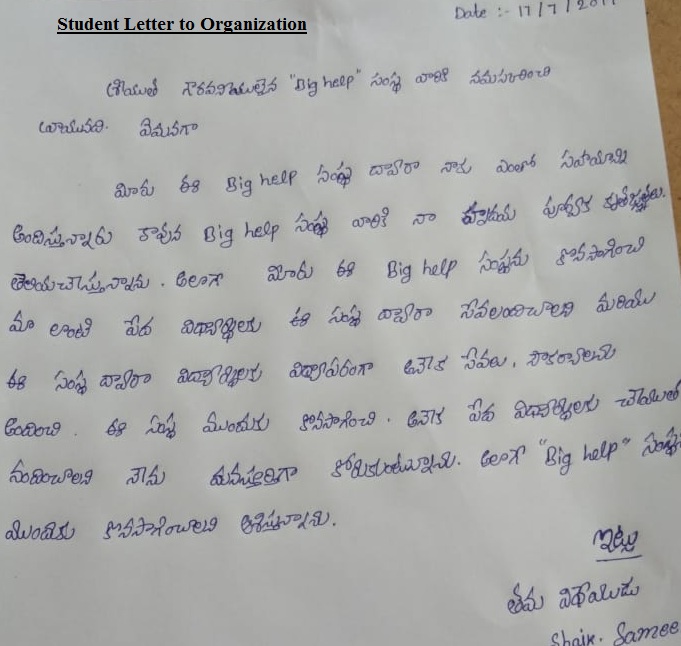 Student Letter to Organization
Date :- 17/7/201
శ్రీయుత గౌరవనీయులైన "Big help" సంస్థ వారికి నమస్కరించి
వ్రాయునది. ఏమనగా
మీరు ఈ Big help సంస్థ ద్వారా నాకు ఎంతో సహాయాన్ని
అందిస్తున్నారు కావున Big help సంస్థ వారికి నా హృదయ పూర్వక కృతజ్ఞతలు.
తెలియచేస్తున్నాను. అలాగే మీరు ఈ Big help సంస్థను కొనసాగించి
మా లాంటి పేద విద్యార్థులకు ఈ సంస్థ ద్వారా సేవలందించాలని మరియు
ఈ సంస్థ ద్వారా విద్యార్థులకు విద్యాపరంగా అనేక సేవలు, సౌకర్యాలను
అందించి. ఈ సంస్థ ముందుకు కొనసాగించి. అనేక పేద విద్యార్థులకు చేయుత
నందించాలని నేను మనస్ఫూర్తిగా కోరుకుంటున్నాను. అలాగే "Big help" సంస్థ
ముందుకు కొనసాగించాలని ఆశిస్తున్నాను.
ఇట్లు
తమ విధేయుడు
Shaik. Samee